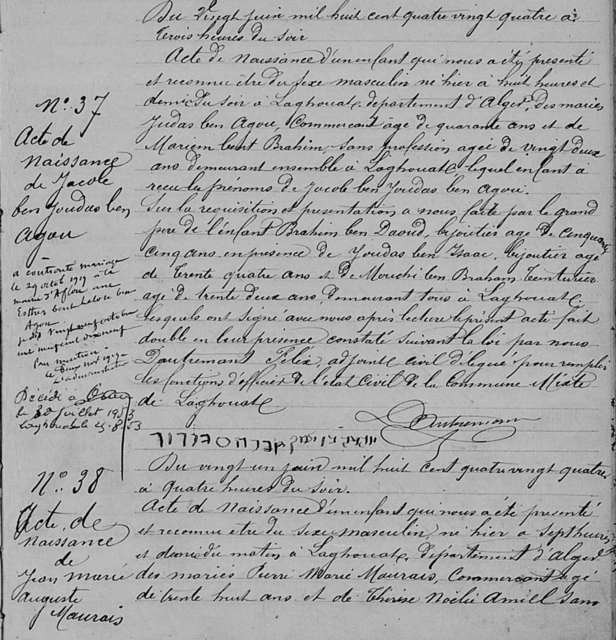 Du vingt juin mil huit cent quatre vingt quatre à
trois heures du soir
Acte de Naissance d'un enfant qui nous a été présenté
et reconnu être du sexe masculin né hier à huit heures et
demie du soir à Laghouat, département d'Alger, des mariés
Joudas ben Agou, Commerçant âgé de quarante ans et de
Mariem bent Brahim, sans profession agée de vingt deux
ans demeurant ensemble à Laghouat lequel enfant a
reçu les prénoms de Jacob ben Joudas ben Agou.
Sur la requisition et présentation à nous faite par le grand
père de l'enfant Brahim ben Daoud, bijoutier agé de Cinquante
cinq ans en présence de Joudas ben Isaac, bijoutier agé
de trente quatre ans et de Mouchi ben Braham teinturier
agé de trente deux ans, demeurant tous à Laghouat
lesquels ont signé avec nous après lecture le présent acte fait
double en leur présence constaté suivant la loi par nous
Dautremant Félix, adjoint civil délégué pour remplir
les fonctions d'officier de l'état Civil de la Commune Mixte
de Laghouat
Dautremant
N° 37
Acte de
Naissance
de Jacob
ben Joudas ben
Agou
a contracté mariage
le 29 octob 1919 à la
mairie d'Aflou avec
Esther bent
Agou
Par mention
l'administrateur
Décédé à
le 30 juillet 1953
Laghouat 5.8.53
N° 38
Acte de
Naissance
de
Jean Marie
Auguste
Maurais
Du vingt un juin mil huit cent quatre vingt quatre
à quatre heures du soir.
Acte de Naissance d'un enfant qui nous a été présenté
et reconnu être du sexe masculin, né hier à sept heures
et demie du matin à Laghouat, département d'Alger
des mariés Pierre Marie Maurais, Commerçant agé
de trente huit ans et de Thérèse Noélie Amiel sans